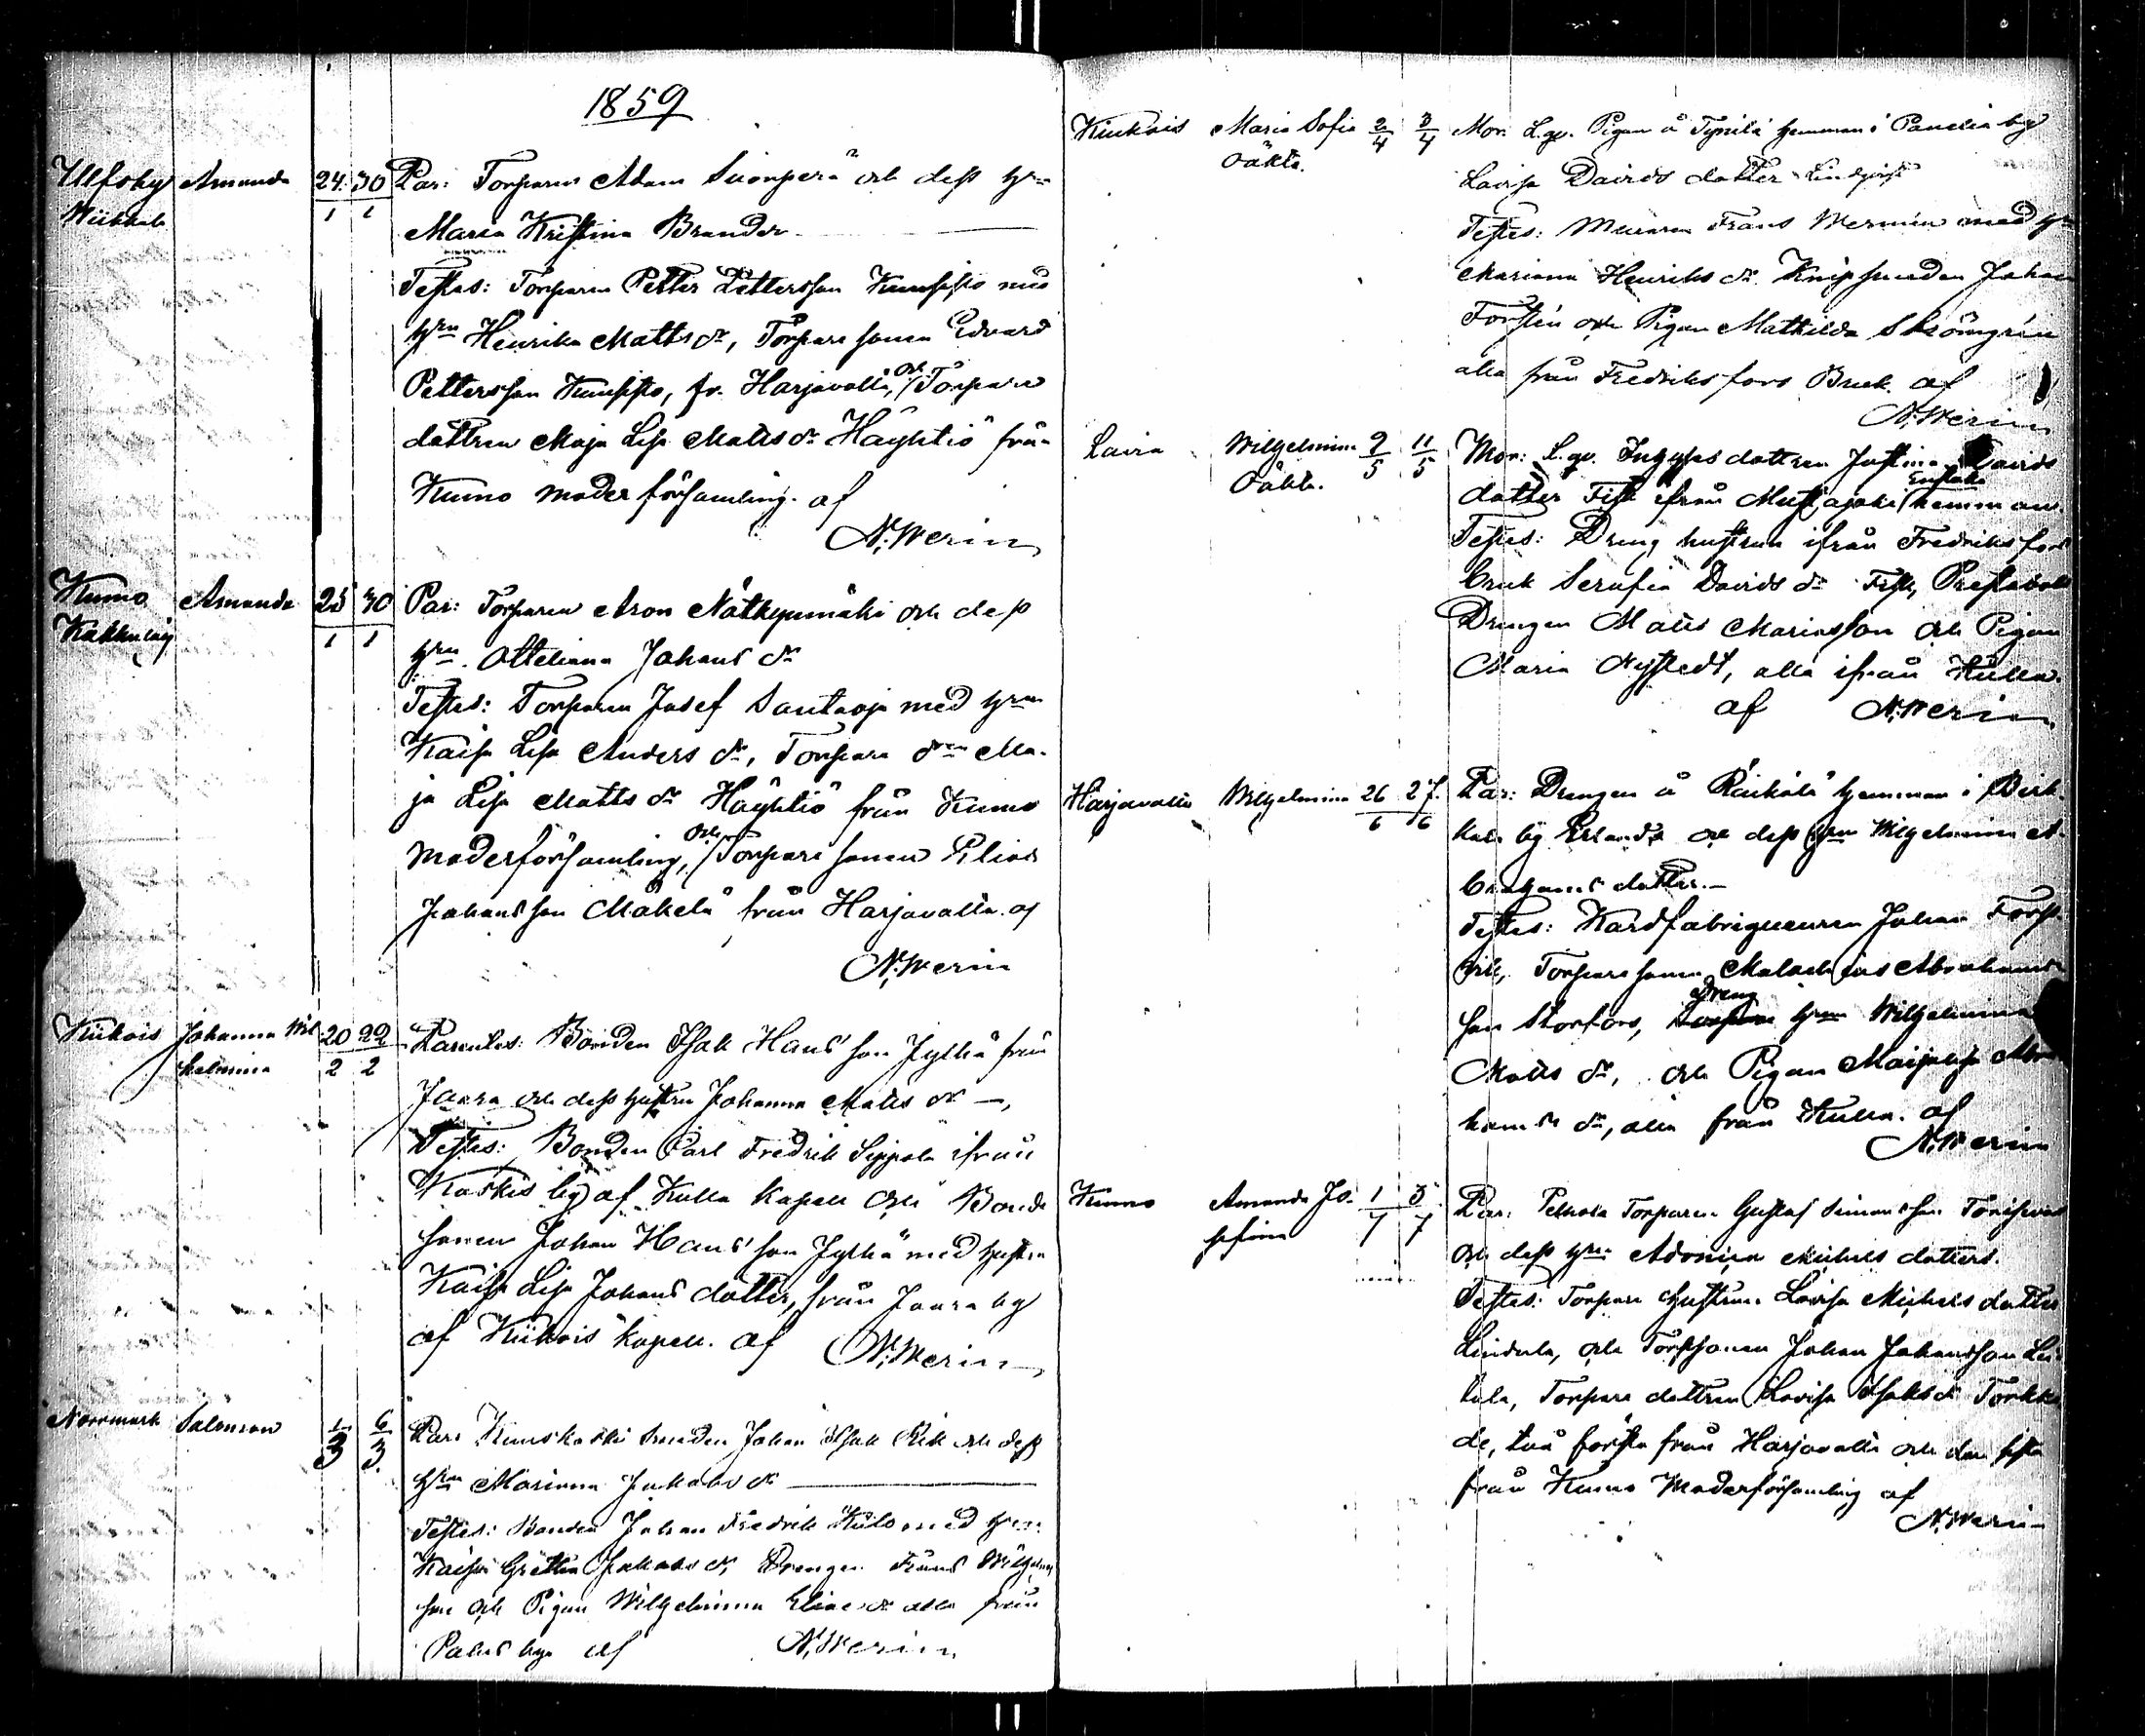 1859
Ulfsby Amanda 24 30 Par: Torparen Adam Suonperä och dess hru
Wiikkala 1 1 Maria Kristina Brander
Testes: Torparen Petter Pettersson med
hru Henrika Matts dr, Torpare sonen Edvard
Pettersson, fr. Harjavalla, och Torpare
dottren Maja Lisa Matts dr Häyhtiö från
Kumo moderförsamling. af
N. Werin
Kumo Amanda 25 30 Par: Torparen Aron Nätkynmäki och dess
1 1 hru Ottiliana Johans dr
Testes: Torparen Josef Santaoja med hru
Kaisa Lisa Anders dr, Torpare drn Ma-
ja Lisa Matts dr Häyhtiö från Kumo
Moderförsamling, och Torpare sonen Elias
Johansson Mäkelä från Harjavalla. af
N. Werin
Kiikois Johanna Wil 20 22 Parentes: Bonden Isak Hans son Jylhä från
helmina 2 2 Jaara och dess hustru Johanna Matts dr —,
Testes: Bonden Carl Fredrik Seppälä ifrån
Koskis by af Kulla Kapell och Bonde
sonen Johan Hans son Jylhä med hustru
Kaisa Lisa Johans dotter, från Jaara by
af Kiikois kapell. af N. Werin
Norrmark Salomon 1 6 Par: Smeden Johan Isak och dess
3 3 hru Marianna Jakobs dr
Testes: Bonden Johan Fredrik med hru
Kaisa Gretha Jakobs dr, Drengen Frans Wilhelms
son och Pigan Wilhelmina Elias dr alla från
Palus by af N. Werin
Kiukais Maria Sofia 2 3 Mor: L. qv. Pigan å Tynilä hemman i Panelia by
Oäkta. 4 4 Lovisa Davids dotter Lindqvist
Testes: Muraren Frans Wermén med hru
Mariana Henriks dr. Knipsmeden Johan
Forstén och Pigan Mathilda Strömgrén
alla från Fredriksfors Bruk. af
N. Werin
Lavia Wilhelmina 9 11 Mor: L. qv. Inhyses dottren Justina Davids
Oäkta. 5 5 dotter Fisk ifrån Mustajoki hemman
Testes: Dreng hustrun ifrån Fredriksfors
bruk Serafia Davids dr Fisk,
Drengen Matts Mariasson och Pigan
Maria Nystedt, alla ifrån Kulla.
af N. Werin
Harjavalla Wilhelmina 26 27. Par: Drengen å Räikälä hemman i Pirk-
6 6 kala by och dess hru Wilhelmina A-
brahams dotter.—
Testes: Kardfabriqueuren Johan
Torpare sonen Malachias Abrahams
son Storfors, Dreng hru Wilhelmina
Matts dr, och Pigan Maijalisa Abra
hams dr, alla från Kulla. af
N. Werin
Kumo Amanda Jo- 1 3 Par: Torparen Gustaf Simonsson
sefina 7 7 och dess hru Adonica Michels dotter.
Testes: Torpare hustrun Lovisa Michels dotter
Lindula, och Torpsonen Johan Johansson Lin
dula, Torpare dottren Lovisa Isaks dr
två första från Harjavalla och den sista
från Kumo Moderförsamling af
N. Werin